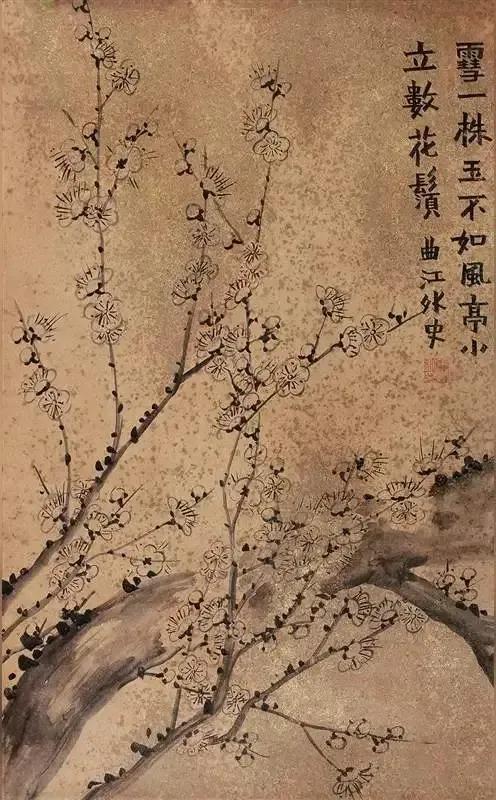 雪一株玉不如風亭小
立數花鬚
曲江外史